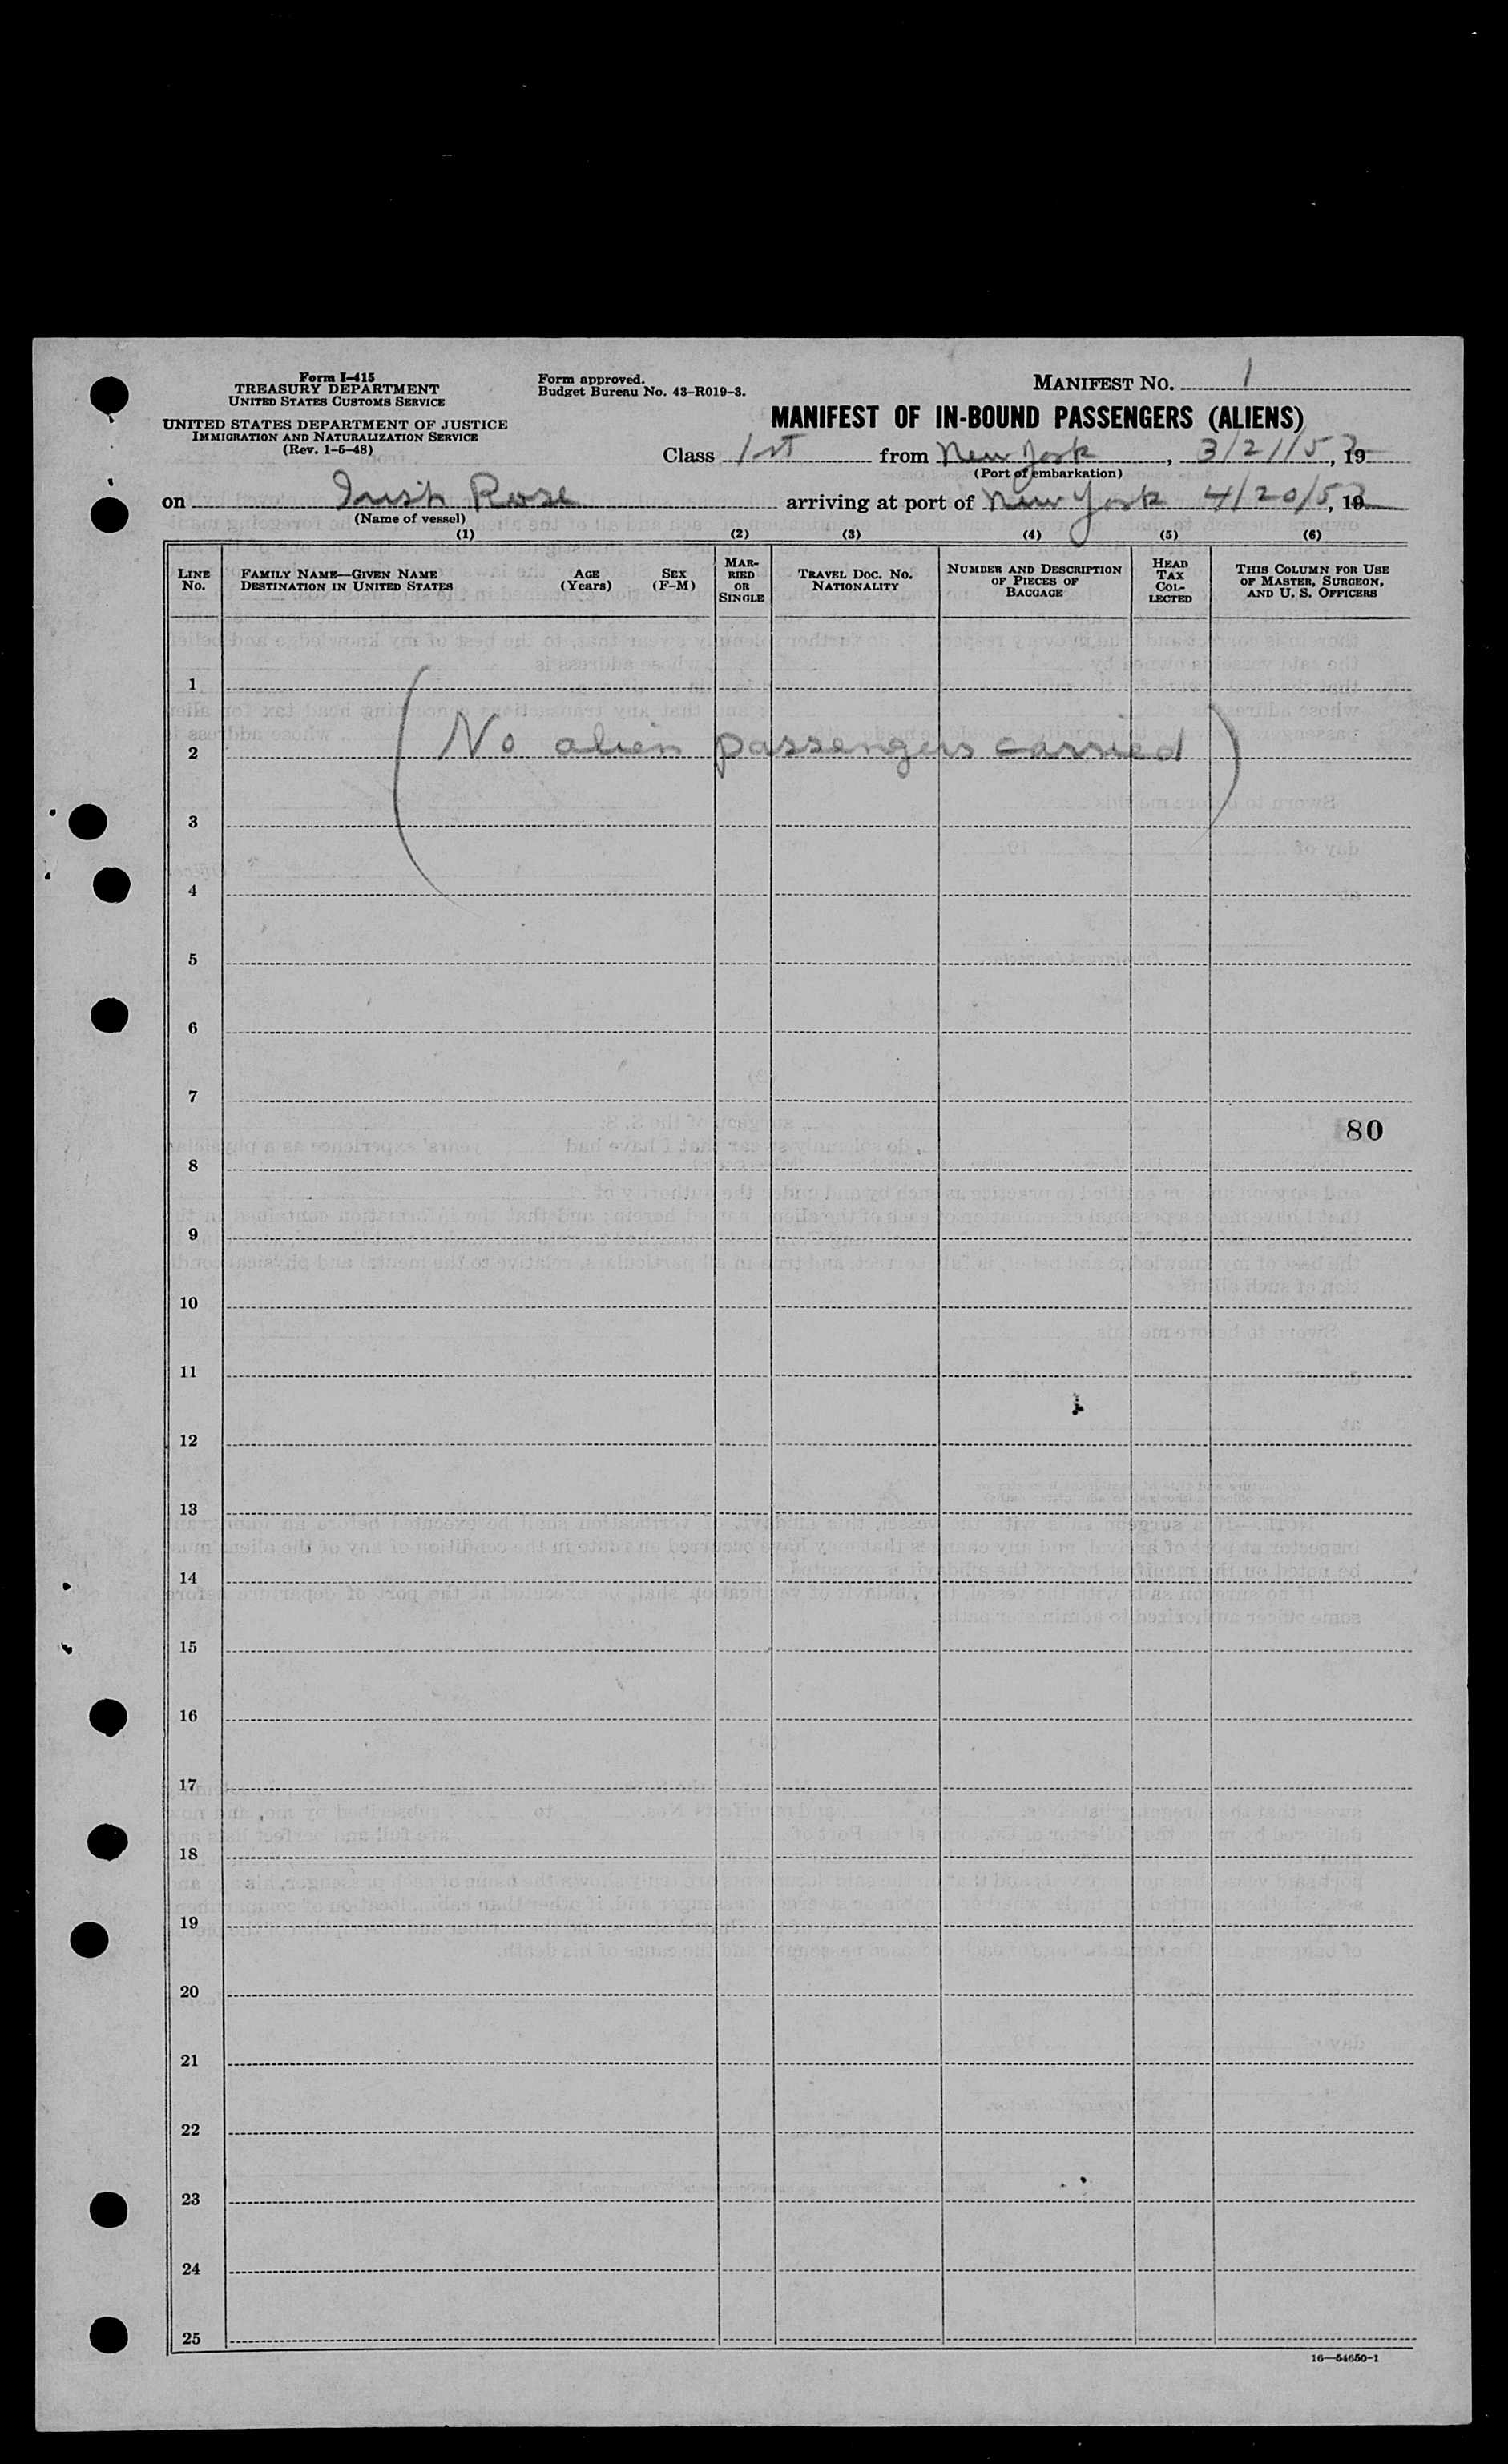 Form I-415
TREASURY DEPARTMENT
UNITED STATES CUSTOMS SERVICE
UNITED STATES DEPARTMENT OF JUSTICE
IMMIGRATION AND NATURALIZATION SERVICE
(Rev. 1-5-48)
Form approved.
Budget Bureau No. 43-R019-3.
MANIFEST NO. 1
MANIFEST OF IN-BOUND PASSENGERS (ALIENS)
Class 1st from New York, 3/21/53, 19
(Port of embarkation)
on Irish Rose arriving at port of New York 4/20/53, 19
(Name of vessel)
(1) (2) (3) (4) (5) (6)
LINE No. FAMILY NAME—GIVEN NAME DESTINATION IN UNITED STATES AGE (Years) SEX (F-M) MARRIED OR SINGLE TRAVEL DOC. NO. NATIONALITY NUMBER AND DESCRIPTION OF PIECES OF BAGGAGE HEAD TAX COLLECTED THIS COLUMN FOR USE OF MASTER, SURGEON, AND U. S. OFFICERS
1
2 (No alien passengers carried)
3
4
5
6
7
80
8
9
10
11
12
13
14
15
16
17
18
19
20
21
22
23
24
25
16—54650-1